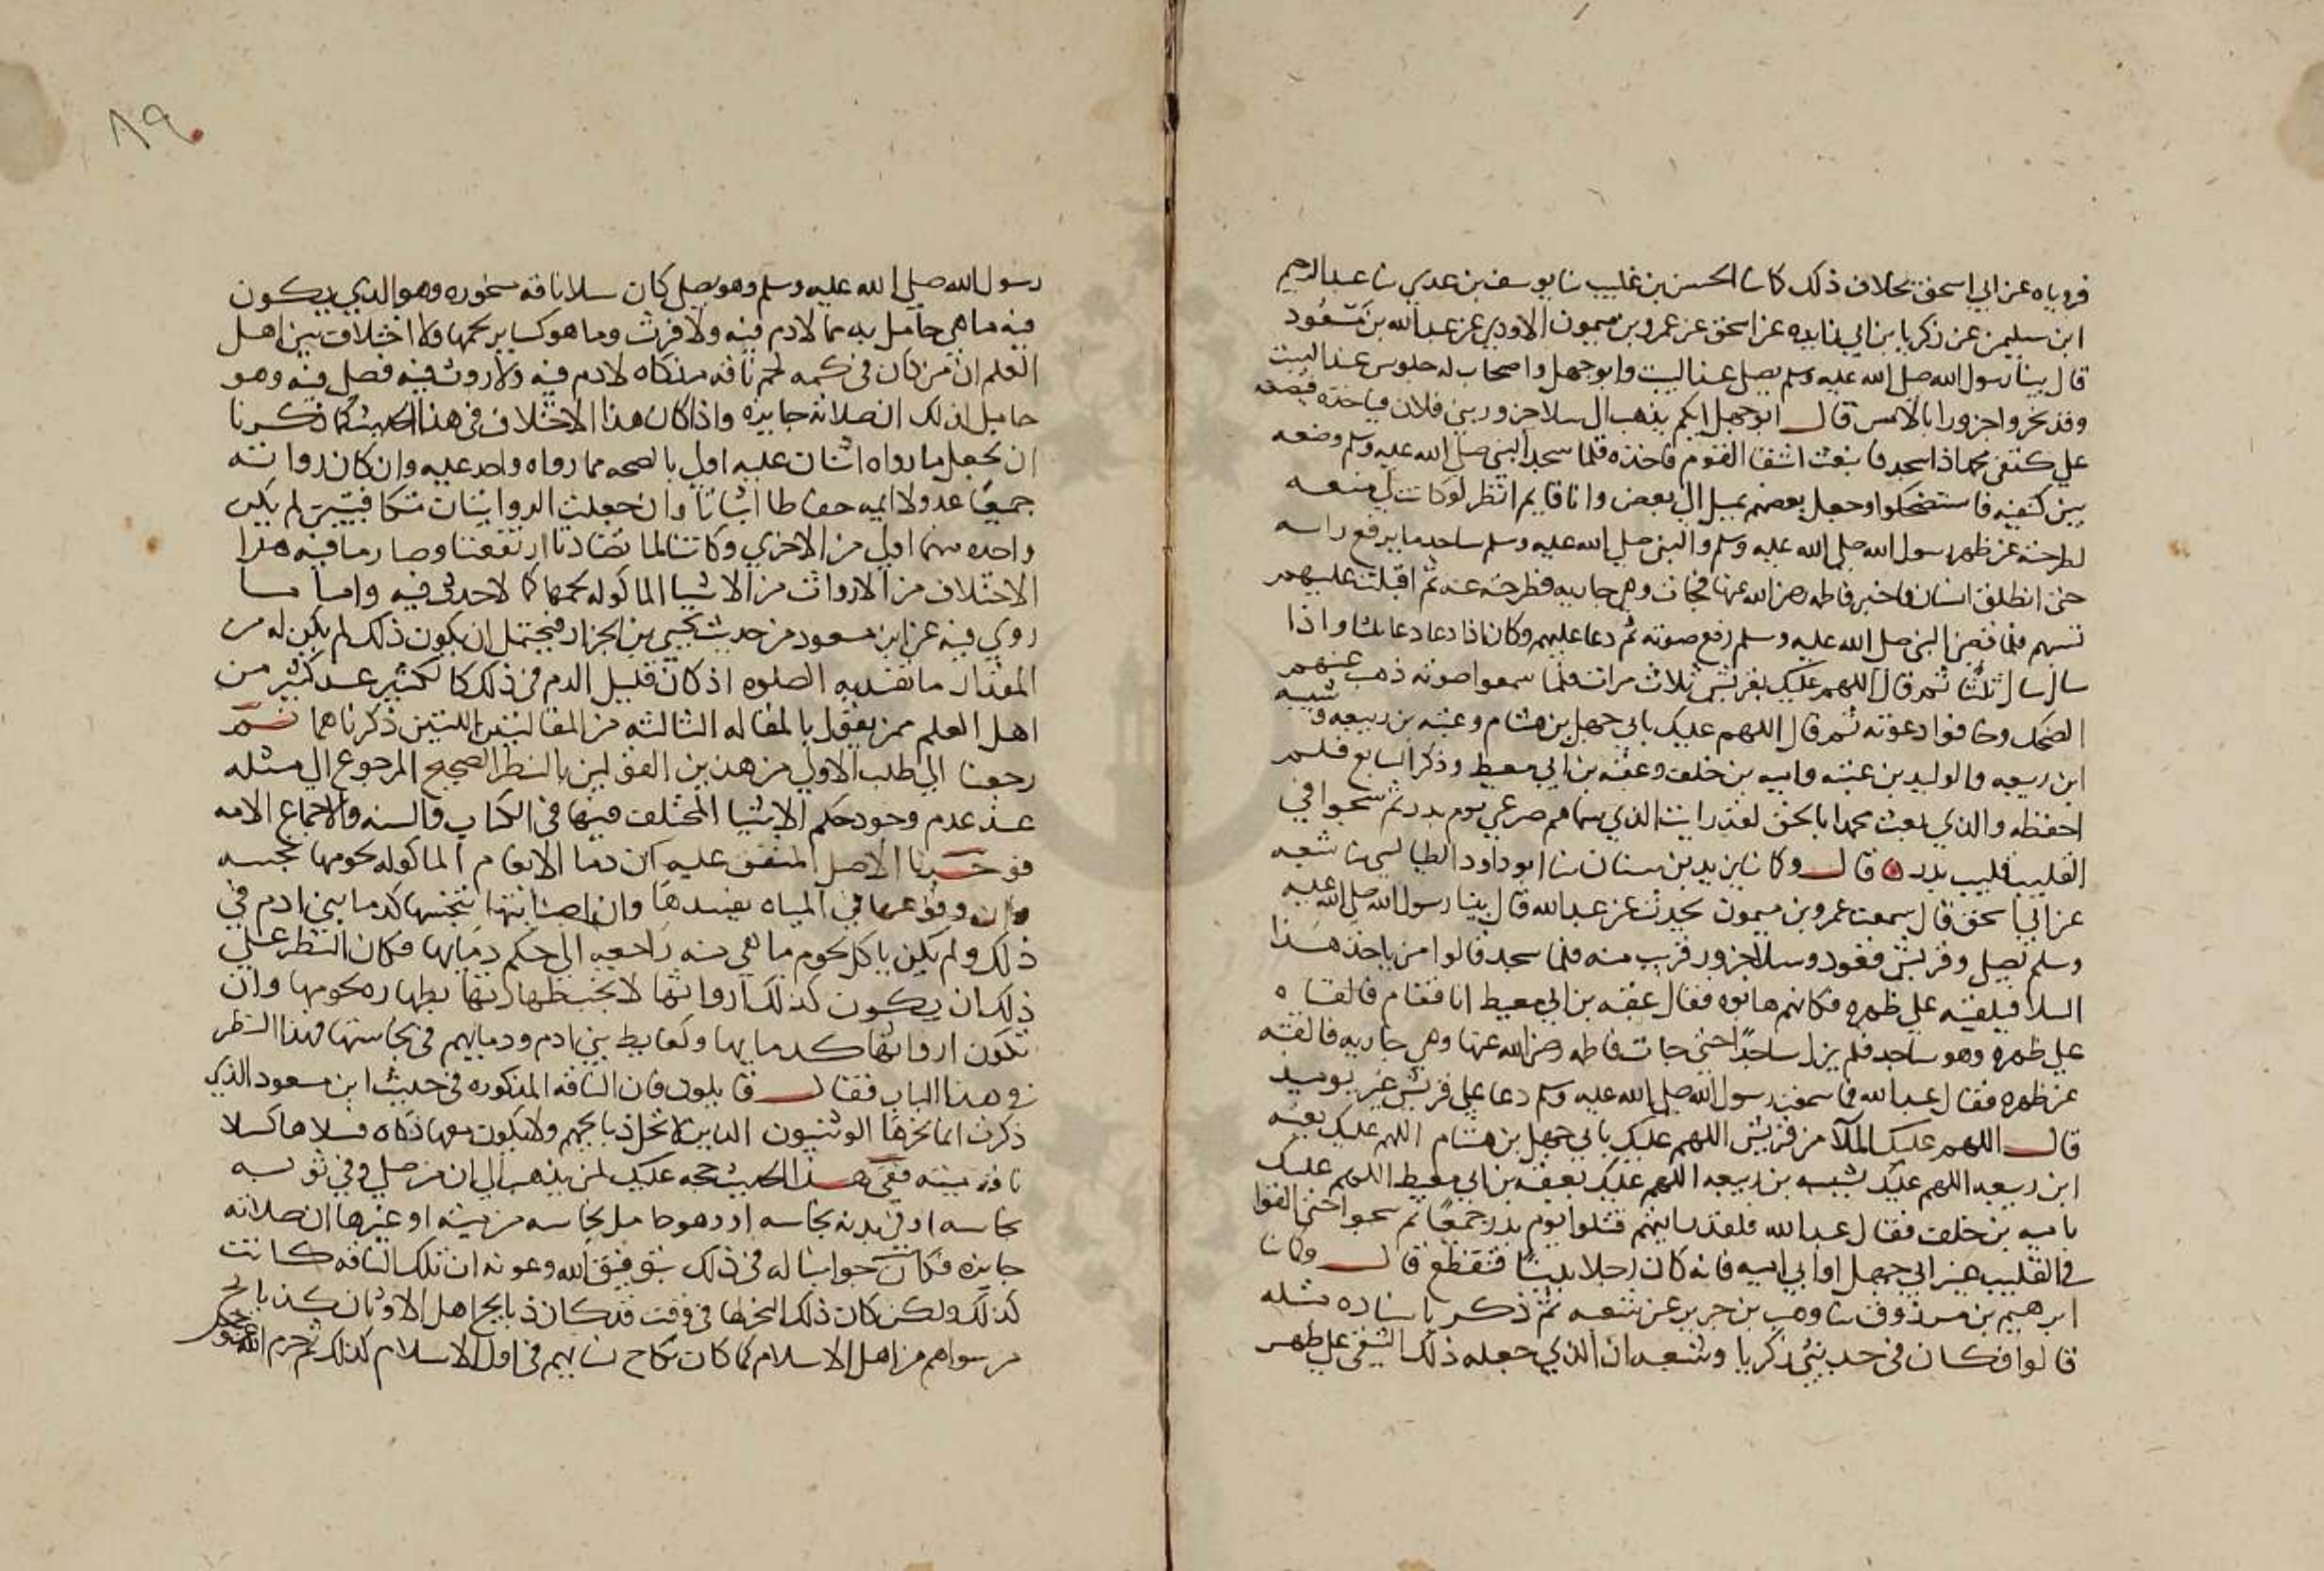 فروياه عن ابي اسحق بخلاف ذلك كما نا الحسن بن غليب نا يوسف بن عدي نا عبد الرحيم
ابن سليمن عن زكريا بن ابي زايده عن اسحق عن عمرو بن ميمون الاودي عن عبد الله بن مسعود
قال بينا رسول الله صلى الله عليه وسلم يصلي عند البيت وابو جهل واصحاب له جلوس عند البيت
وقد نحروا جزورا بالامس قال ابو جهل ايكم يذهب الى سلا جزور بني فلان فياخذه فيضعه
على كتفي محمد اذا سجد فانبعث اشقا القوم فاخذه فلما سجد النبي صلى الله عليه وسلم وضعه
بين كتفيه فاستضحكوا وجعل بعضهم يميل الى بعض وانا قايم انظر لو كانت لي منعه
لطرحته عن ظهر رسول الله صلى الله عليه وسلم والنبي صلى الله عليه وسلم ساجد ما يرفع راسه
حتى انطلق انسان فاخبر فاطمه رضي الله عنها فجات وهي جاريه فطرحته عنه ثم اقبلت عليهم
تسبهم فلما قضى النبي صلى الله عليه وسلم رفع صوته ثم دعا عليهم وكان اذا دعا دعا ثلثا واذا
سال سال ثلثا ثم قال اللهم عليك بقريش ثلاث مرات فلما سمعوا صوته ذهب عنهم
الضحك وخافوا دعوته ثم قال اللهم عليك بابي جهل بن هشام وعتبه بن ربيعه وشيبه
ابن ربيعه والوليد بن عتبه واميه بن خلف وعقبه بن ابي معيط وذكر السابع فلم
احفظه والذي بعث محمدا بالحق لقد رايت الذي سماهم صرعى يوم بدر ثم سحبوا في
القليب قليب بدر ه قال وكما نا يزيد بن سنان نا ابو داود الطيالسي نا شعبه
عن ابي اسحق قال سمعت عمرو بن ميمون يحدث عن عبد الله قال بينا رسول الله صلى الله عليه
وسلم يصلي وقريش قعود وسلا جزور قريب منه فلما سجد قالوا من ياخذ هذا
السلا فيلقيه على ظهره فكانهم هابوه فقال عقبه بن ابي معيط انا فقام فالقاه
على ظهره وهو ساجد فلم يزل ساجدا حتى جات فاطمه رضي الله عنها وهي جاريه فالقته
عن ظهره فقال عبد الله فما سمعت رسول الله صلى الله عليه وسلم دعا على قريش غير يوميد
قال اللهم عليك الملا من قريش اللهم عليك بابي جهل بن هشام اللهم عليك بعتبه
ابن ربيعه اللهم عليك بشيبه بن ربيعه اللهم عليك بعقبه بن ابي معيط اللهم عليك
باميه بن خلف فقال عبد الله فلقد رايتهم قتلوا يوم بدر جميعا ثم سحبوا حتى القوا
في القليب غير ابي جهل او ابي اميه فانه كان رجلا بدينا فتقطع قال وكما نا
ابرهيم بن مرزوق نا وهب بن جرير عن شعبه ثم ذكر باسناده مثله
قالوا فكان في حديثي زكريا وشعبه ان الذي جعله ذلك الشقي على ظهر
٨٩
رسول الله صلى الله عليه وسلم وهو يصلي كان سلا ناقه منحوره وهو الذي يكون
فيه ما هي حامل به مما لا دم فيه ولا فرث وما هو كساير لحمها ولا اختلاف بين اهل
العلم ان من كان في كمه لحم ناقه مذكاه لا دم فيه ولا روث فيه فصلى فيه وهو
حامل لذلك ان صلاته جايزه واذا كان هذا الاختلاف في هذا الحديث كما ذكرنا
ان يجعل ما رواه اثنان عليه اولى بالصحه مما رواه واحد عليه وان كان رواته
جميعا عدولا ايمه حفاظا اثباتا وان جعلت الروايتان متكافيتين لم يكن
واحده منهما اولى من الاخرى وكانتا لما تضادتا ارتفعتا وصار ما فيه هذا
الاختلاف من الارواث من الاشيا الماكوله لحمها كما لا حديث فيه واما ما
روي فيه عن ابن مسعود من حديث يحيى بن الجزار فيحتمل ان يكون ذلك لم يكن له من
المقدار ما تفسد به الصلوه اذ كان قليل الدم في ذلك كالكثير عند كثير من
اهل العلم ممن يقول بالمقاله الثالثه من المقالتين اللتين ذكرناهما ثم
رجعنا الى طلب الاولى من هذين القولين بالنظر الصحيح المرجوع الى مثله
عند عدم وجود حكم الاشيا المختلف فيها في الكتاب والسنه والاجماع الامه
فوجدنا الاصل المتفق عليه ان دما الانعام الماكوله لحومها نجسه
وان وقوعها في المياه يفسدها وان اصابتها تنجسها كدما بني ادم في
ذلك ولم يكن ياكل لحوم ما هي منه راجعه الى حكم دمايها فكان النظر على
ذلك ان يكون كذلك ارواثها لا يجب طهارتها بطهاره لحومها وان
تكون ارواثها كدمايها وكغايط بني ادم ودمايهم في نجاستها فهذا النظر
في هذا الباب فقال قايلون فان الناقه المذكوره في حديث ابن مسعود الذي
ذكرت انما نحرها الوثنيون الذين لا تحل ذبايحهم ولا يكون معها ذكاه فسلاها كسلا
ناقه ميته ففي هذا الحديث حجه عليك لمن يذهب الى ان من صلى وفي ثوبه
نجاسه او في بدنه نجاسه او وهو حامل نجاسه من ميته او غيرها ان صلاته
جايزه فكان جوابنا له في ذلك بتوفيق الله وعونه ان تلك الناقه كانت
كذلك ولكن كان ذلك النحر لها في وقت قد كان ذبايح اهل الاوثان كذبايح
من سواهم من اهل الاسلام كما كان نكاح نسايهم في اول الاسلام كذلك ثم حرم الله عز وجل